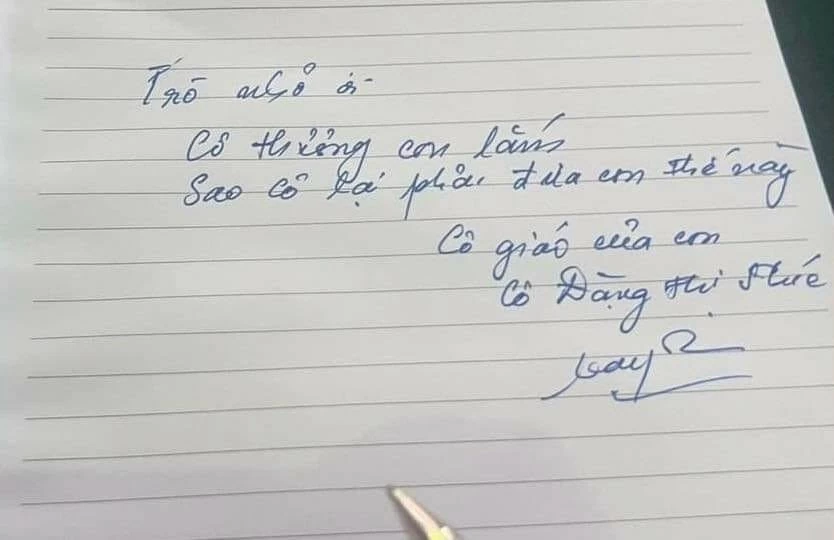 Trò nhỏ ơi
Cô thương con lắm
Sao cô lại phải đưa con thế này
Cô giáo của con
Cô Đặng thị